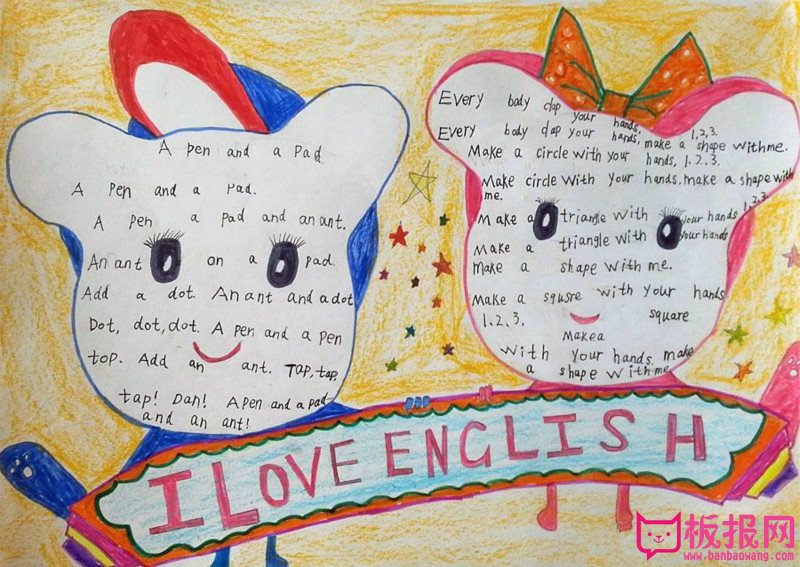 A pen and a pad.
A pen and a pad.
A pen a pad and an ant.
An ant on a pad.
Add a dot. An ant and a dot
Dot, dot, dot. A pen and a pen
top. Add an ant. Tap, tap,
tap! Dan! A pen and a pad
and an ant!
Every body clap your hands, 1,2,3.
Every body clap your hands, make a shape with me.
Make a circle with your hands, 1.2.3.
Make circle with your hands. make a shape with
me.
1.2.3.
Make a triangle with your hands
Make a triangle with your hands
Make a shape with me.
Make a squsre with your hands
1.2.3. square
Make a
with your hands. make
a shape with me
I LOVE ENGLISH
板报网
www.banbaowang.com